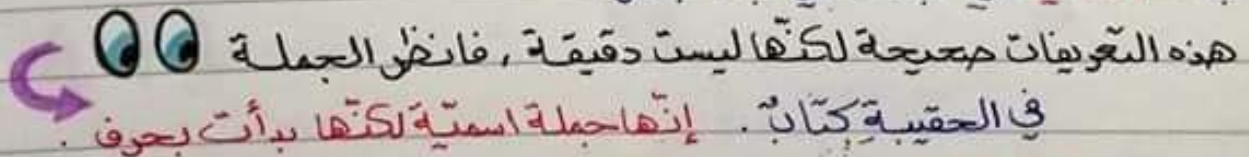 هذه التعريفات صحيحة لكنّها ليست دقيقة ، فانظر الجملة
في الحقيبةِ كتابٌ . إنّها جملة اسميّة لكنّها بدأت بحرف .